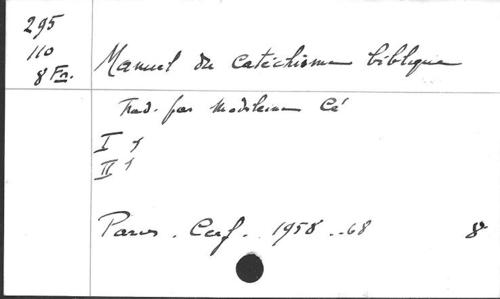 295
110
8 Fr.
Manuel du catéchisme biblique
Trad. par Madeleine Cé
I 1
II 1
Paris. Cerf. 1958..68 8°